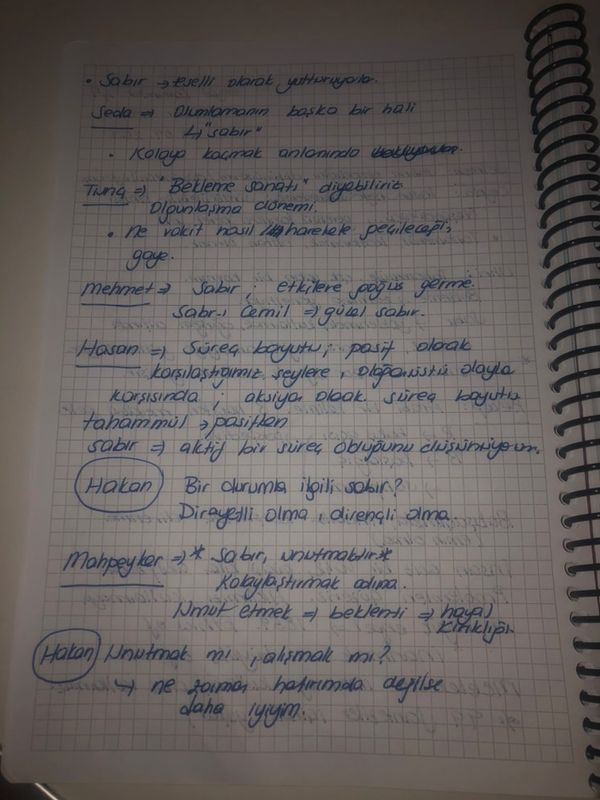 • Sabır → teselli olarak yutturuyorlar.
Seda ⇒ Olumlamanın başka bir hali
↳ "sabır"
• Kolaya kaçmak anlamında
Tuna ⇒ "Bekleme sanatı" diyebiliriz
Olgunlaşma dönemi.
• Ne vakit nasıl harekete geçileceği,
gaye.
Mehmet ⇒ Sabır ; etkilere göğüs germe.
Sabr-ı Cemil ⇒ güzel sabır.
Hasan ⇒ Süreç boyutu ; pasif olarak
karşılaştığımız şeylere, olağanüstü olayla
karşısında ; aksiyon olarak. süreç boyutu
tahammül → pasiften
sabır ⇒ aktif bir süreç olduğunu düşünüyorum.
Hakan Bir durumla ilgili sabır?
Dirayetli olma, dirençli olma.
Mahpeyker ⇒ * Sabır, unutmaktır *
Kolaylaştırmak adına.
Umut etmek ⇒ beklenti ⇒ hayal
kırıklığı.
Hakan Unutmak mı, alışmak mı?
↳ ne zaman hatırımda değilse
daha iyiyim.